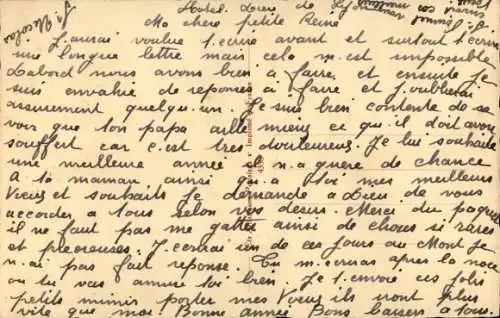 St Nicolas
Hotel Dieu de
Ma chère petite Reine
J'aurai voulue t'ecrire avant et surtout t'ecrire
une longue lettre mais cela m'est impossible
Dabord nous avons bien à faire, et ensuite Je
suis envahie de reponses à faire et J'oublierai
assurement quelqu'un. Je suis bien contente de sa-
voir que ton papa aille mieux ce qu'il doit avoir
souffert car c'est tres douleureux. Je lui souhaite
une meilleure année il n'a guère de chance
A ta maman ainsi qu'a toi mes meilleurs
Vœux et souhaits Je demande a Dieu de vous
accorder a tous selon vos desirs. Merci du paquet
il ne faut pas me gater ainsi de choses si rares
et precieuses. J'ecrirai un de ces jours au Mont Je
n'ai pas fait reponse. Tu m'ecriras apres la noce
ou tu vas amuse toi bien. Je t'envoie ces jolis
petits minis porter mes Vœux ils iront plus
vite que moi. Bonne année Bons baisers a tous.